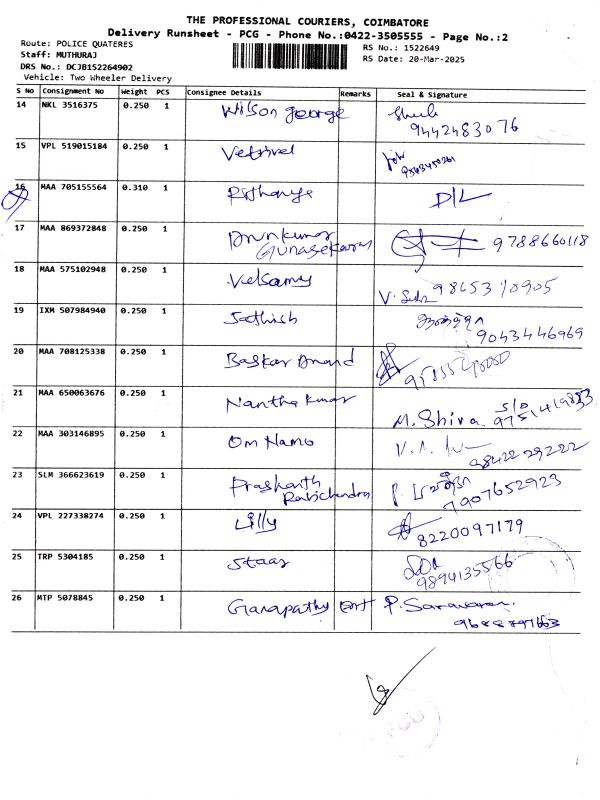 THE PROFESSIONAL COURIERS, COIMBATORE
Delivery Runsheet - PCG - Phone No.:0422-3505555 - Page No.:2
Route: POLICE QUATERES
Staff: MUTHURAJ
DRS No.: DCJB152264902
Vehicle: Two Wheeler Delivery
RS No.: 1522649
RS Date: 20-Mar-2025
S No Consignment No Weight PCS Consignee Details Remarks Seal & Signature
14 NKL 3516375 0.250 1 Wilson george
9442483076
15 VPL 519015184 0.250 1 Vetrivel
16 MAA 705155564 0.310 1 D/L
17 MAA 869372848 0.250 1 Arunkumar
Gunasekaran 9788660118
18 MAA 575102948 0.250 1 Velsamy
19 IXM 507984940 0.250 1 Sathish
9043446969
20 MAA 708125338 0.250 1 Baskar Anand
21 MAA 650063676 0.250 1 Nantha kumar
M. Shiva S/o
22 MAA 303146895 0.250 1 Om Namo
9842229222
23 SLM 366623619 0.250 1 Prashanth
Rabichandra
7907652923
24 VPL 227338274 0.250 1 Lilly
8220097179
25 TRP 5304185 0.250 1 Staar
9894135566
26 MTP 5078845 0.250 1 Ganapathy P. Saravanan.